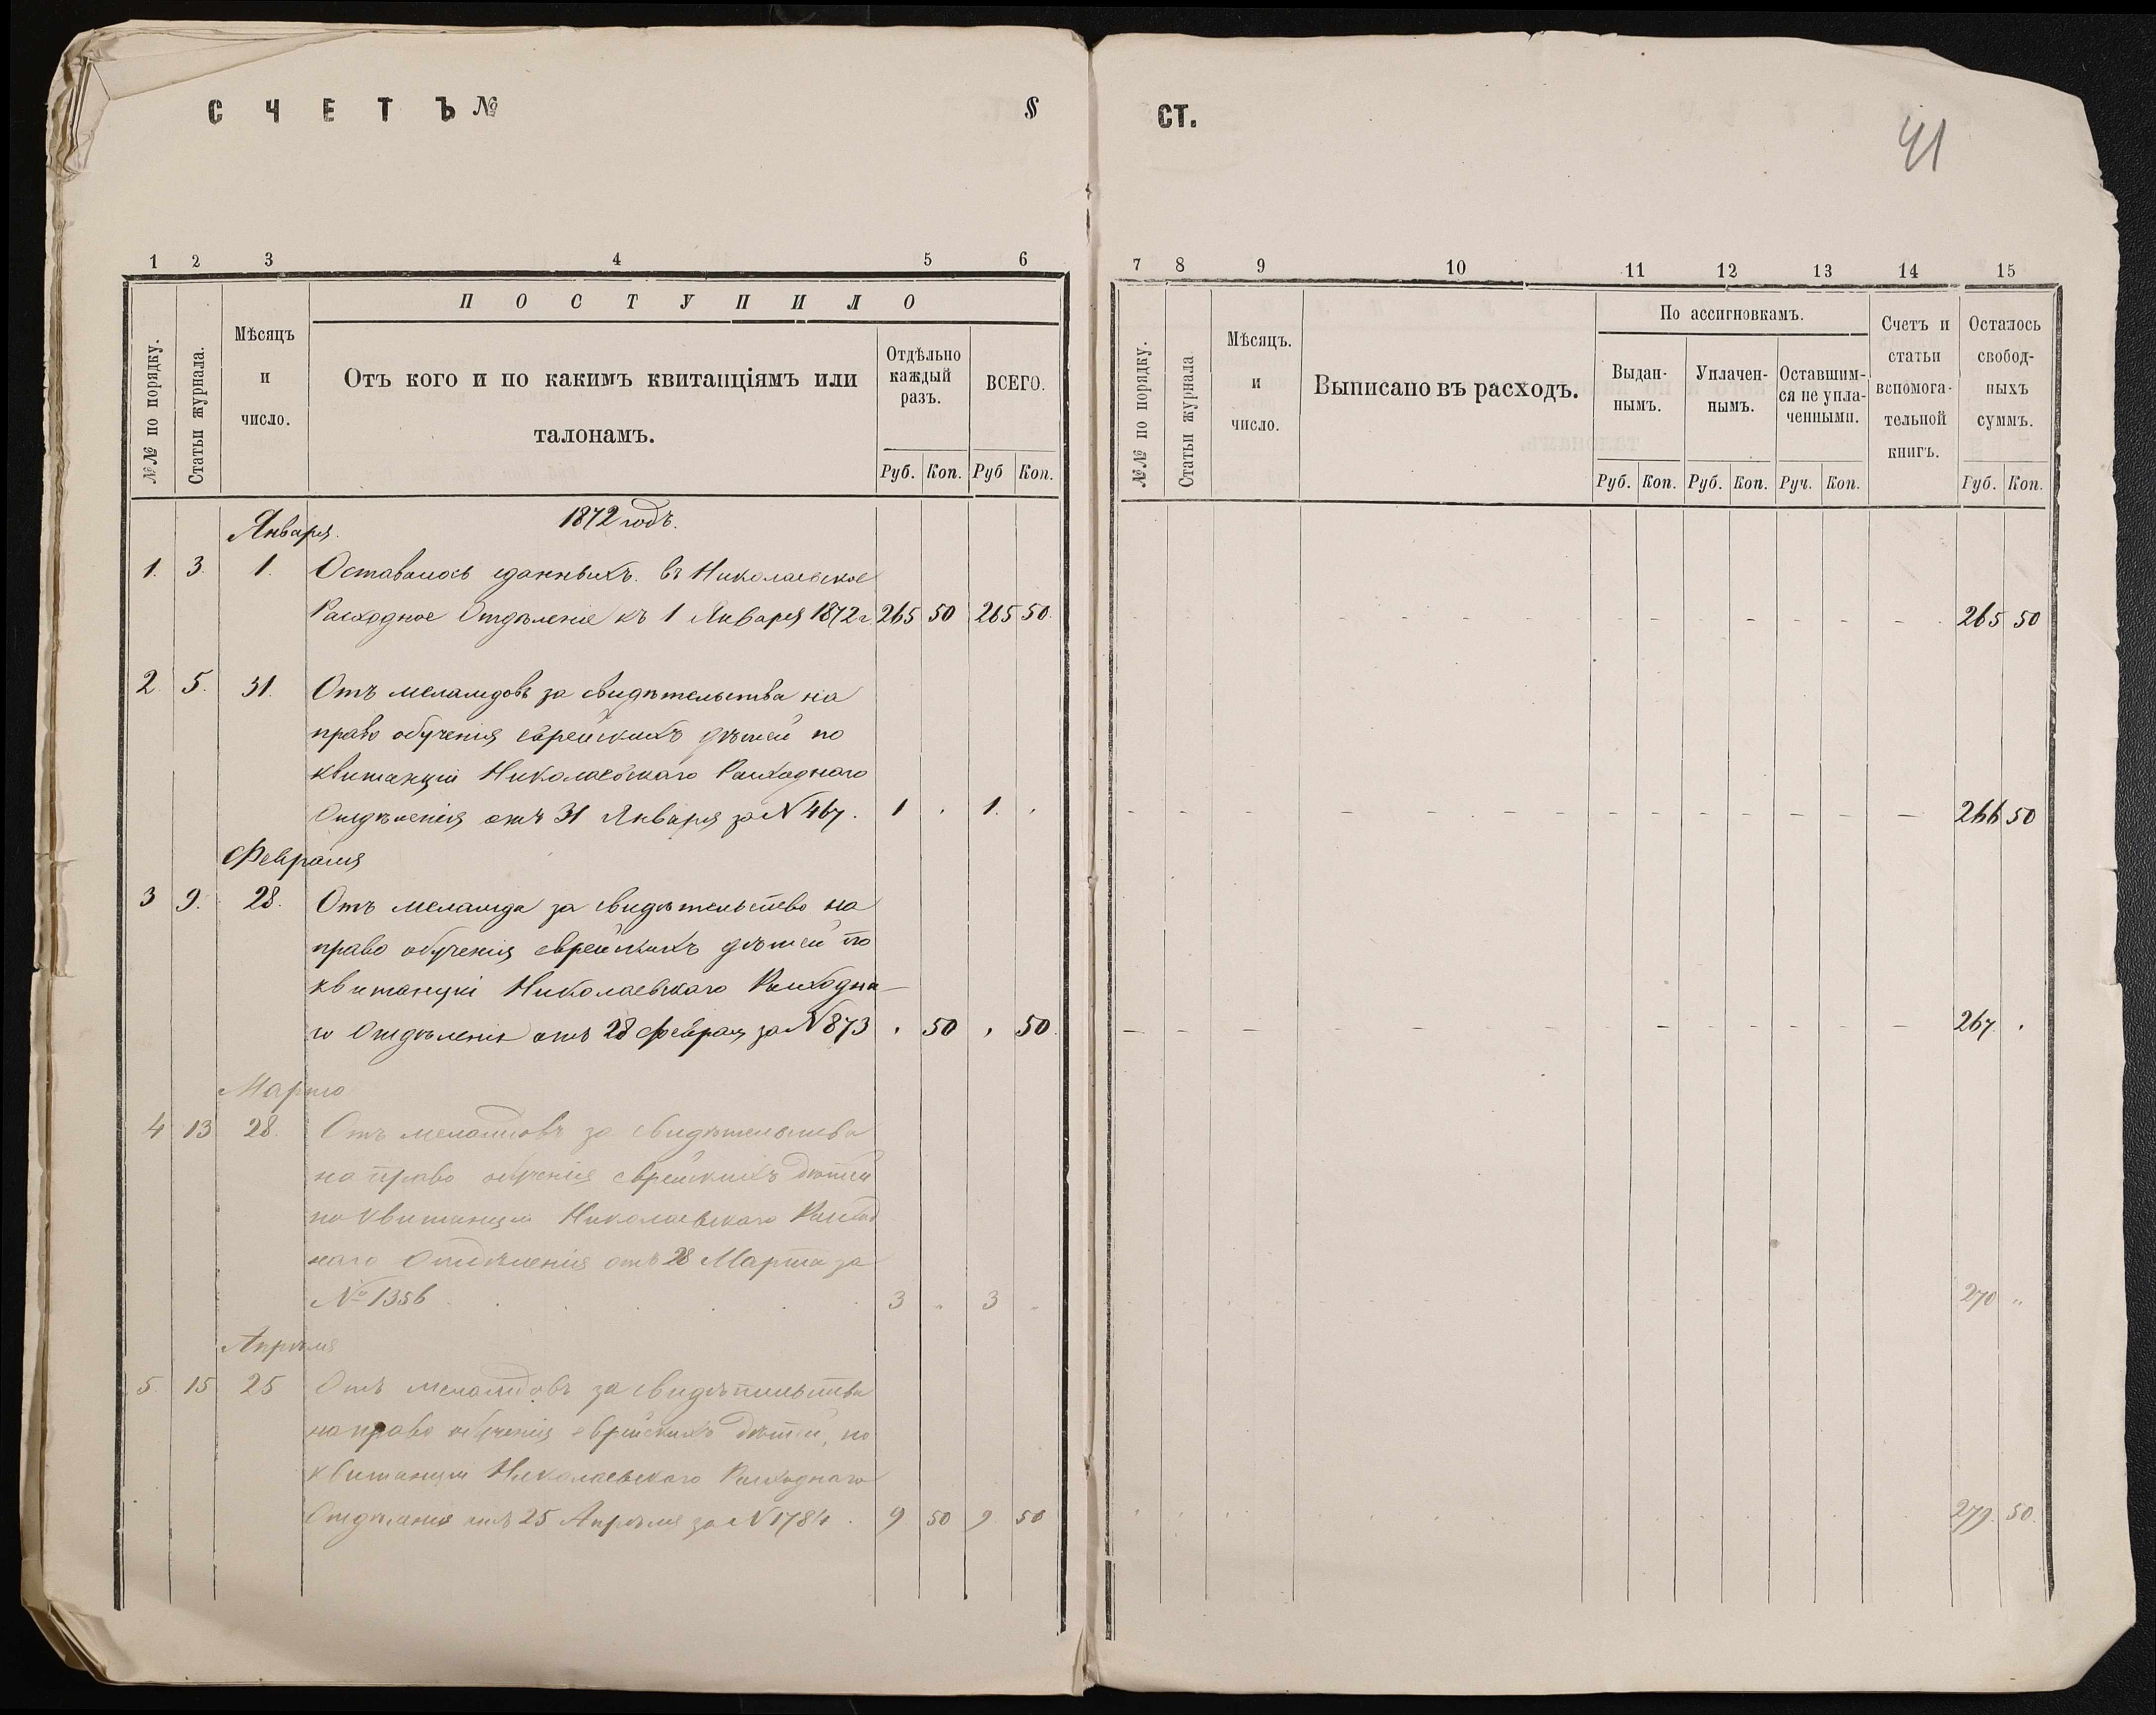 СЧЕТЪ № §
1 2 3 4 5 6
ПОСТУПИЛО
№№ по порядку.
Статьи журнала.
Мѣсяцъ и число.
Отъ кого и по какимъ квитанціямъ или
талонамъ.
Отдѣльно каждый разъ.
ВСЕГО.
Руб. Коп. Руб Коп.
1872 годъ.
Января.
1. 3. 1. Оставалось сданныхъ въ Николаевское
Расходное Отдѣленіе къ 1 Января 1872 г. 265 50 265 50.
2. 5. 31. Отъ меламдовъ за свидѣтельства на
право обученія еврейскихъ дѣтей по
квитанціи Николаевскаго Расходнаго
Отдѣленія отъ 31 Января за N 467. 1 . 1. .
Февраля
3 9. 28. Отъ меламда за свидѣтельство на
право обученія еврейскихъ дѣтей по
квитанціи Николаевскаго Расходна-
го Отдѣленія отъ 28 Февраля за N 873 . 50 . 50.
Марта
4 13 28. Отъ меламдовъ за свидѣтельства
на право обученія еврейскихъ дѣтей
по квитанціи Николаевскаго Расход
наго Отдѣленія отъ 28 Марта за
№ 1356 . . . . . . 3 „ 3 „
Апрѣля
5. 15 25 Отъ меламдовъ за свидѣтельства
на право обученія еврейскихъ дѣтей, по
квитанціи Николаевскаго Расходнаго
Отдѣленія отъ 25 Апрѣля за N 1784 . 9 50 9. 50
СТ.
41
7 8 9 10 11 12 13 14 15
№№ по порядку.
Статьи журнала
Мѣсяцъ. и число.
Выписано въ расходъ.
По ассигновкамъ.
Выдан-
нымъ.
Уплачен-
нымъ.
Оставшим-
ся не упла-
ченными.
Счетъ и
статьи
вспомога-
тельной
книгъ.
Осталось
свобод-
ныхъ
суммъ.
Руб. Коп. Руб. Коп. Руч. Коп. Руб. Коп.
265 50
266 50
267. .
270 „
279. 50.